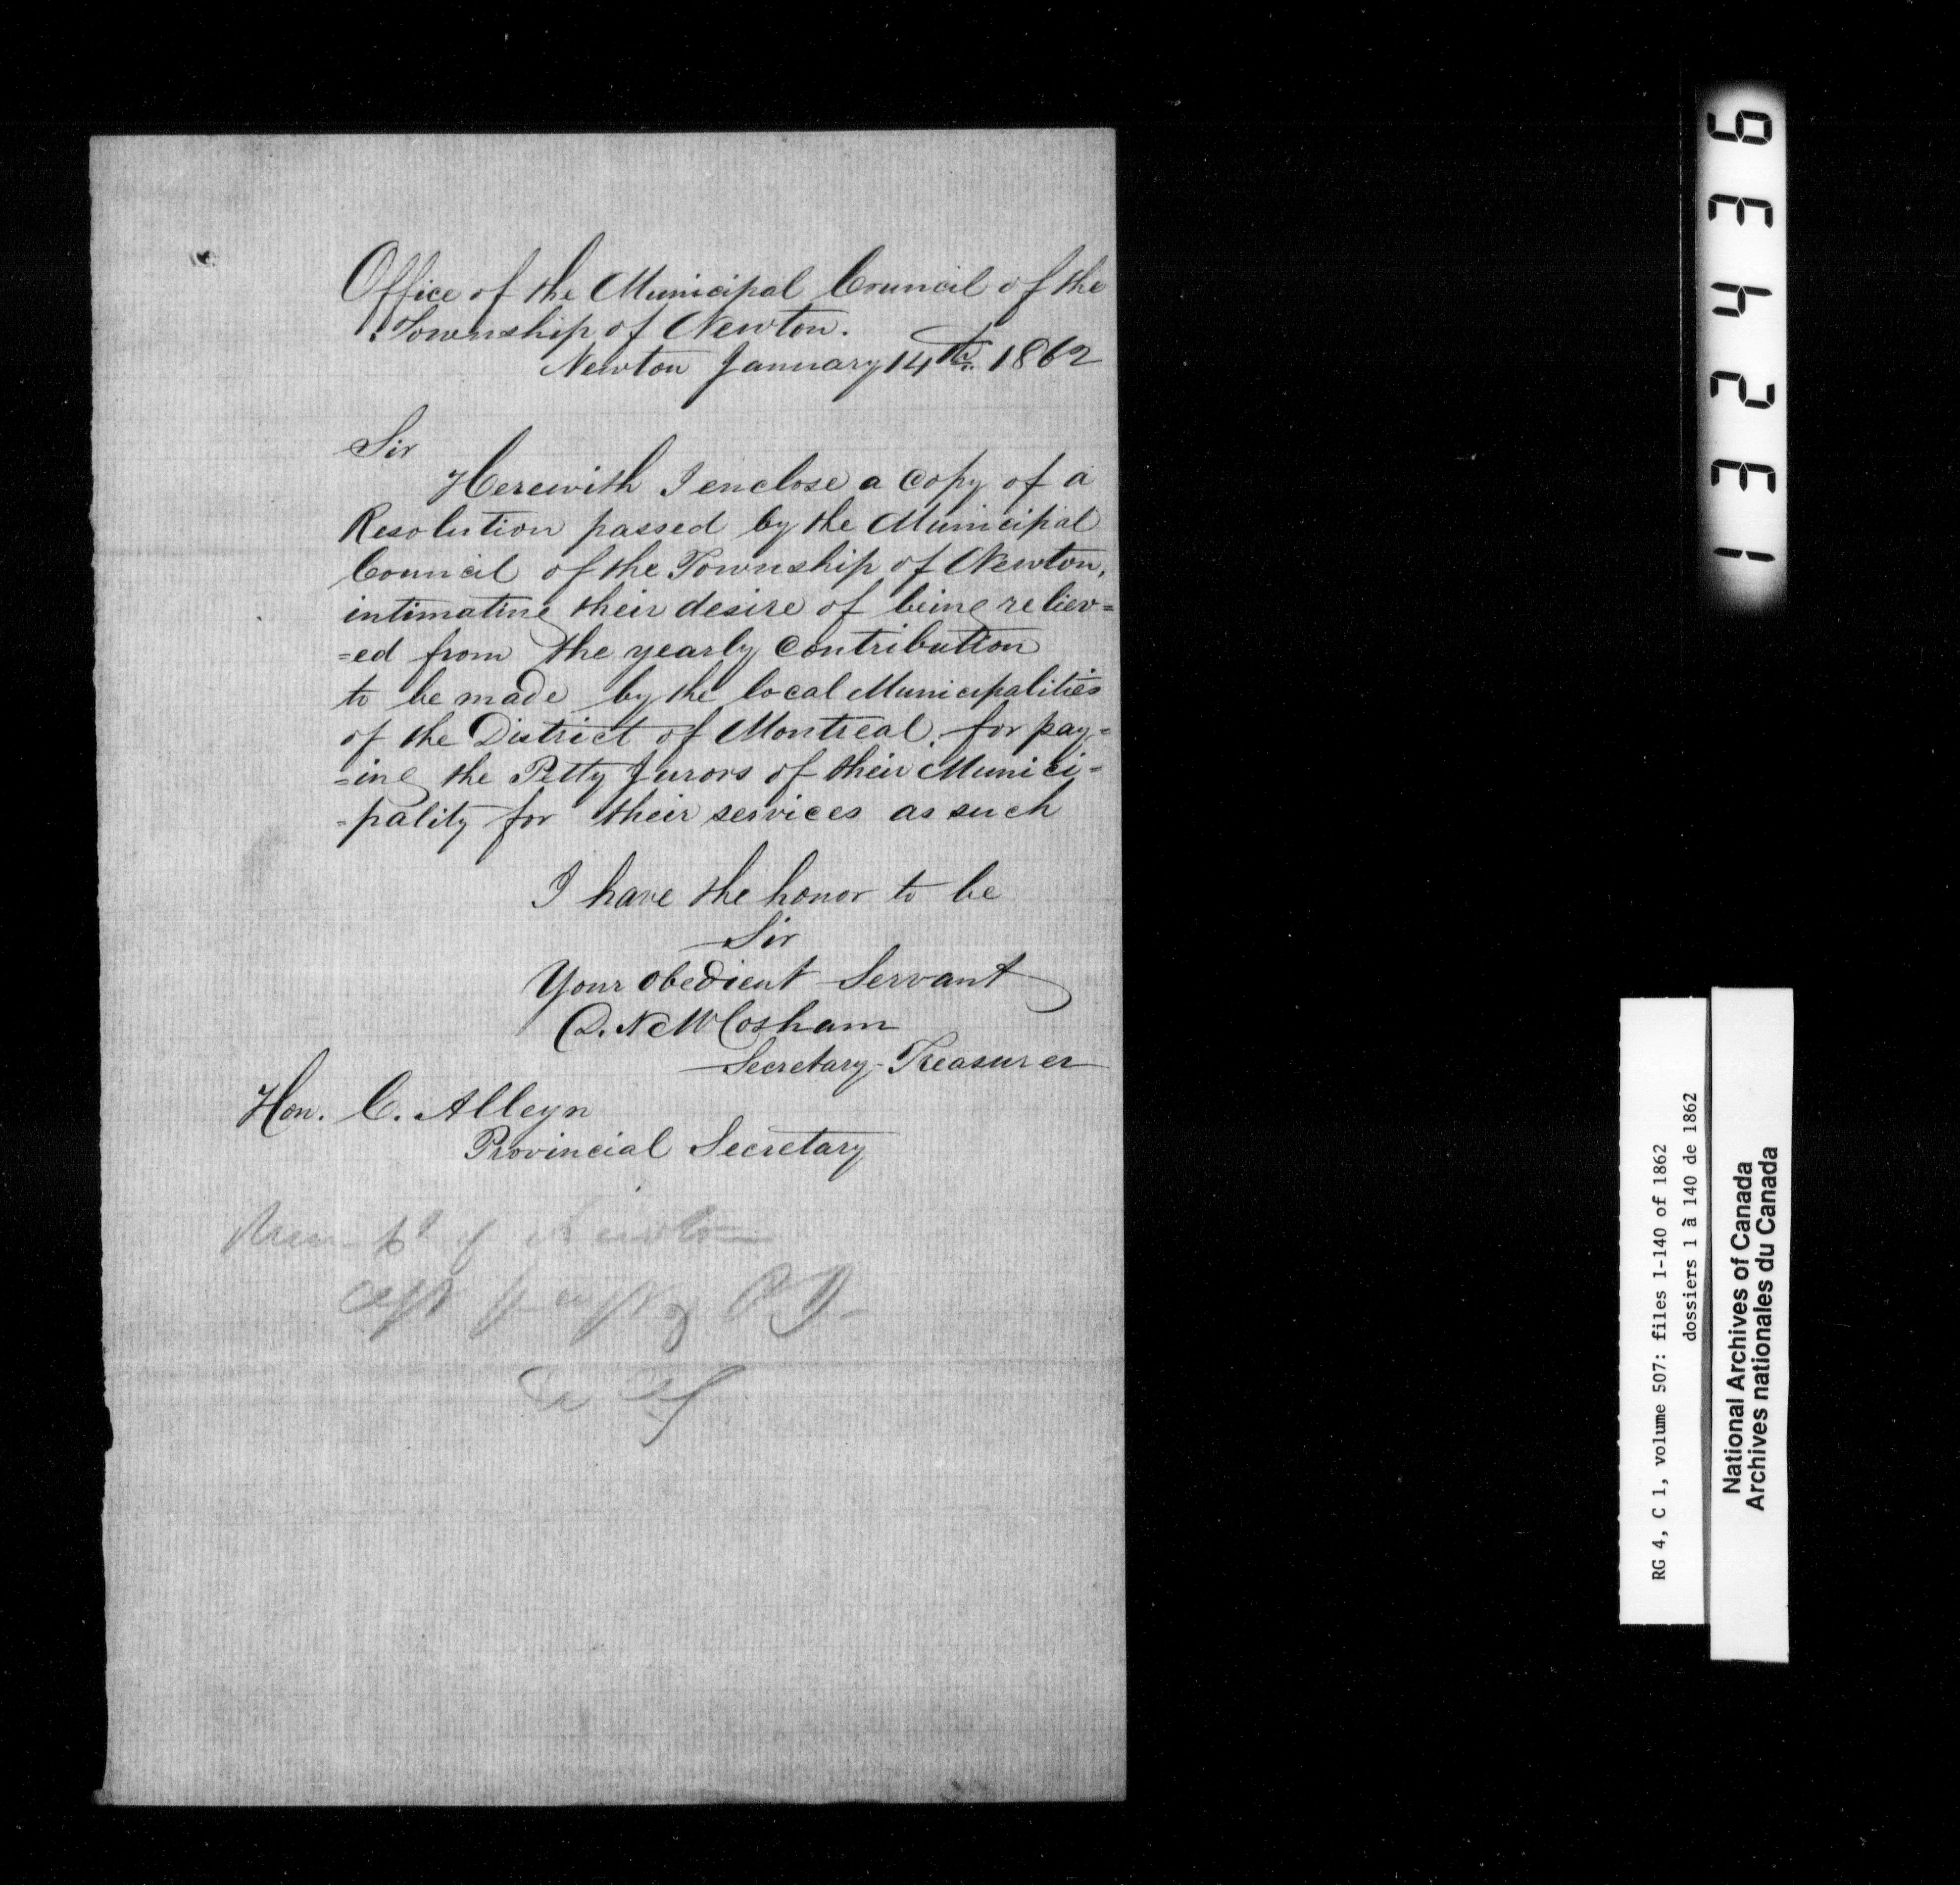 Office of the Municipal Council of the
Township of Newton.
Newton January 14th. 1862
Sir
Herewith I enclose a copy of a
Resolution passed by the Municipal
Council of the Township of Newton,
intimating their desire of being reliev=
=ed from the yearly contribution
to be made by the local Municipalities
of the District of Montreal, for pay=
=ing the Petty Jurors of their Munici=
=pality for their services as such
I have the honor to be
Sir
Your obedient Servant
D. N McCosham
Secretary-Treasurer
Hon. C. Alleyn
Provincial Secretary
of Newton
132436
RG 4, C 1, volume 507: files 1-140 of 1862
dossiers 1 à 140 de 1862
National Archives of Canada
Archives nationales du Canada